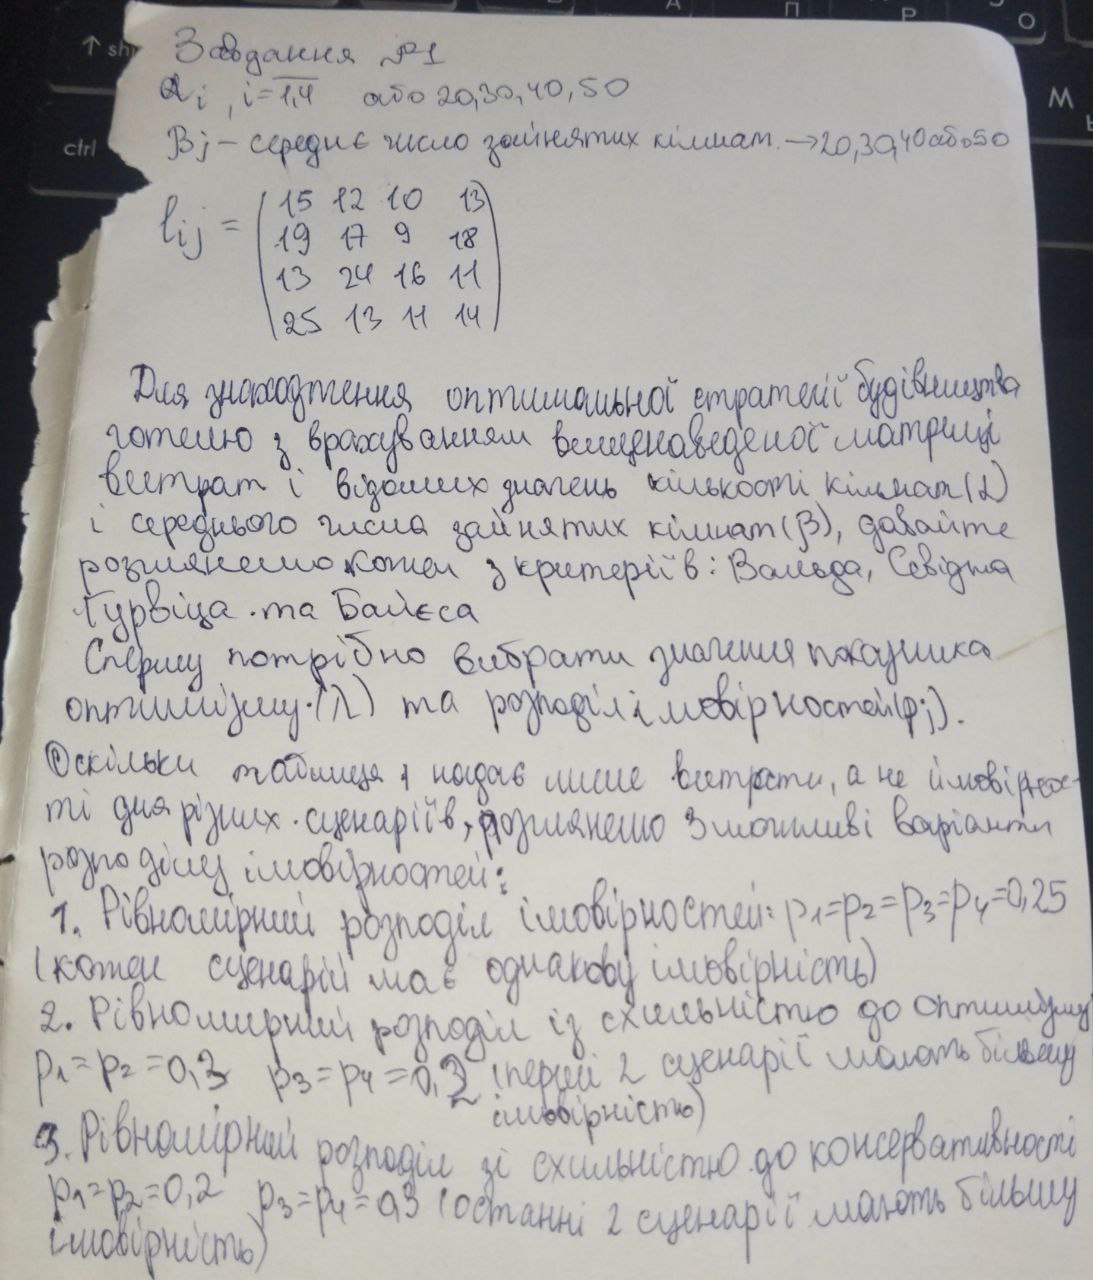 Завдання №1
αi, i=1,4 або 20,30,40,50
Bj – середнє число зайнятих кімнат. → 20,30,40 або 50
lij = (15 12 10 13
19 17 9 18
13 24 16 11
25 13 11 14)
Для знаходження оптимальної стратегії будівництва
готелю з врахуванням вищенаведеної матриці
витрат і відомих значень кількості кімнат (α)
і середнього числа зайнятих кімнат (β), давайте
розглянемо кожен з критеріїв: Вальда, Севіджа
Гурвіца та Байєса
Спершу потрібно вибрати значення показника
оптимізму (λ) та розподіл імовірностей (pj).
Оскільки таблиця 1 надає лише витрати, а не ймовірнос-
ті для різних сценаріїв, розглянемо 3 можливі варіанти
розподілу імовірностей:
1. Рівномірний розподіл імовірностей: p1=p2=p3=p4=0,25
(кожен сценарій має однакову імовірність)
2. Рівномирний розподіл із схильністю до оптимізму
p1=p2=0,3 p3=p4=0,2 (перші 2 сценарії мають більшу
імовірність)
3. Рівномірний розподіл зі схильністю до консервативності
p1=p2=0,2 p3=p4=0,3 (останні 2 сценарії мають більшу
імовірність)